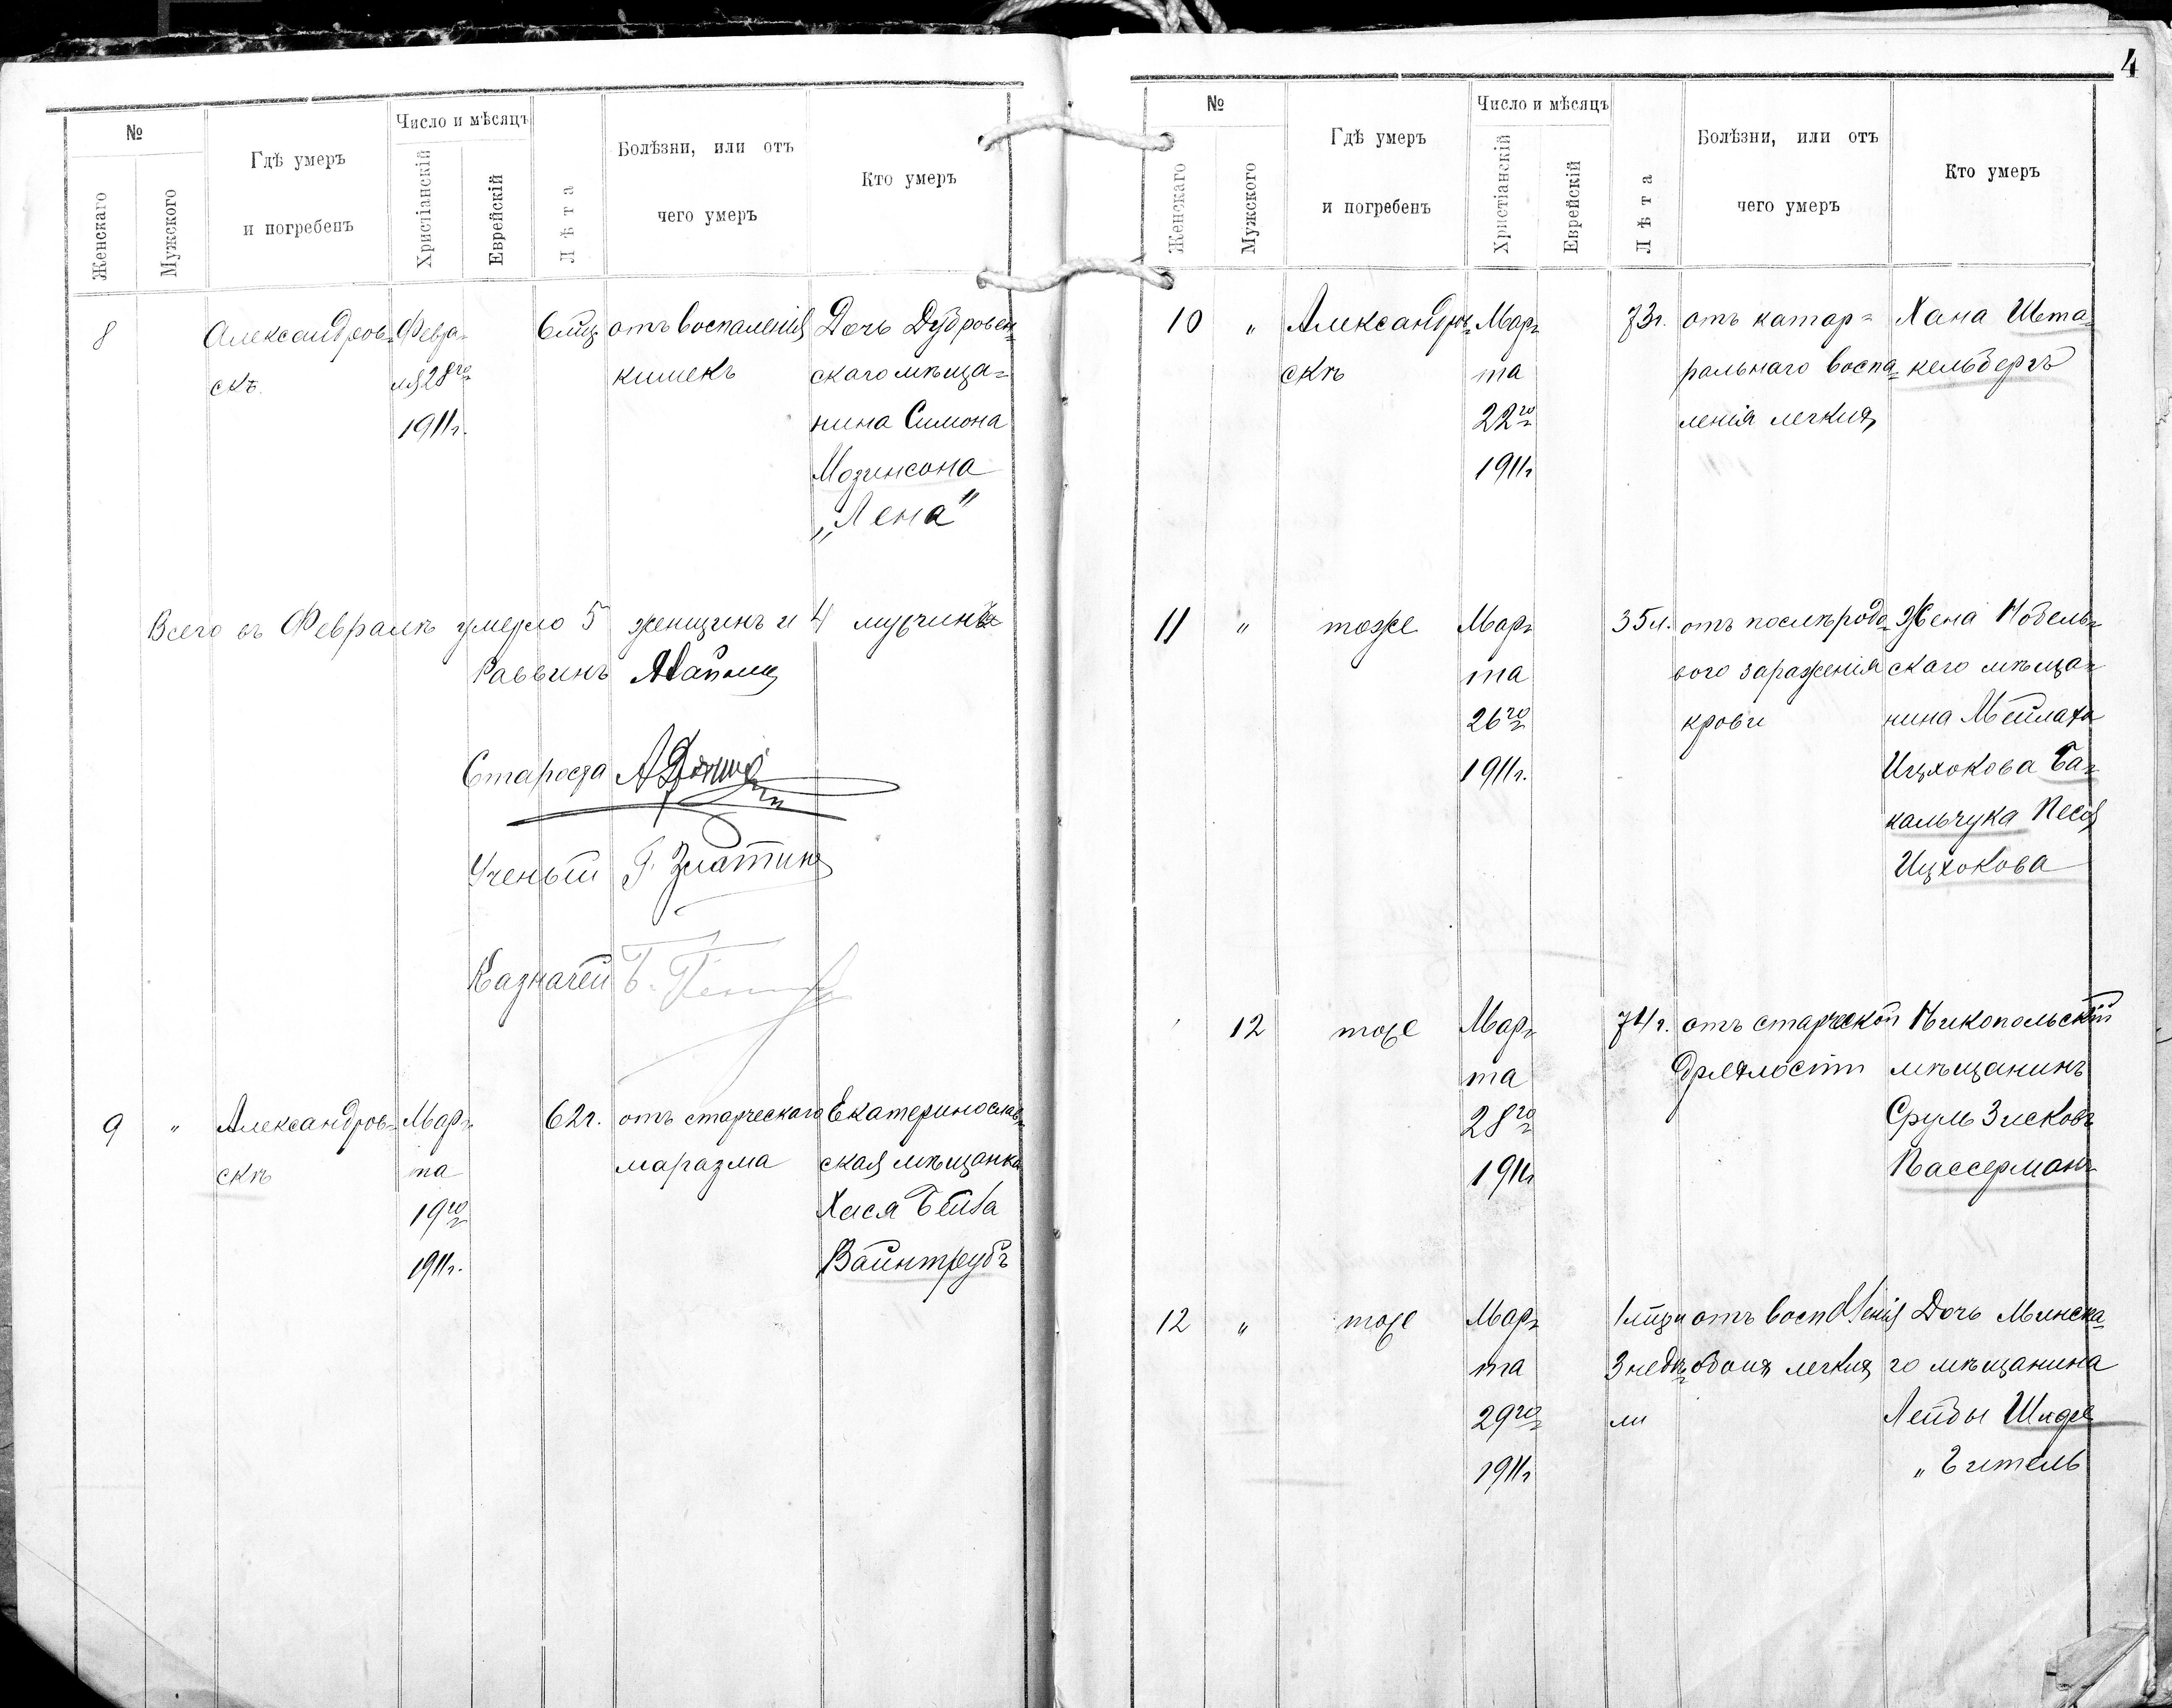 4
№
Женскаго
Мужского
Гдѣ умеръ
и погребенъ
Число и мѣсяцъ
Христіанскій
Еврейскій
Лѣта
Болѣзни, или отъ
чего умеръ
Кто умеръ
8
Александров-
скѣ
Февра-
ля 28го
1911г.
6 мѣц.
отъ воспаленія
кишекъ
Дочь Дубровен-
скаго мѣща-
нина Симона
Мозинсона
„Лена"
Всего въ Февралѣ умерло 5 женщинъ и 4 мужчинъ
Раввинъ
Староста
Ученый Г. Златкинъ
Казначей
9
"
Александров-
скѣ
Мар-
та
19го
1911г.
62г.
отъ старческаго
маразма
Екатеринослав-
ская мѣщанка
Хася Бейла
Вайнтрубъ
№
Женскаго
Мужского
Гдѣ умеръ
и погребенъ
Число и мѣсяцъ
Христіанскій
Еврейскій
Лѣта
Болѣзни, или отъ
чего умеръ
Кто умеръ
10
"
Александров-
скѣ
Мар-
та
22го
1911г
73г.
отъ катар-
ральнаго воспа-
ленія легкихъ
Хана Шта-
кельбергъ
11
"
тоже
Мар-
та
26го
1911г.
35л.
отъ послѣродо-
вого зараженія
крови
Жена Нобель-
скаго мѣща-
нина Мейлаха
Ицхокова Ба-
кальчука Песя
Ицхокова
12
тоже
Мар-
та
28го
1911г
74г.
отъ старческой
дряхлости
Никопольскій
мѣщанинъ
Сруль Зисковъ
Вассерманъ
12
"
тоже
Мар-
та
29го
1911г
1 мѣц и
3 недѣ-
ли
отъ воспаленія
обоихъ легкихъ
Дочь Минска-
го мѣщанина
Лейбы
"Гитель